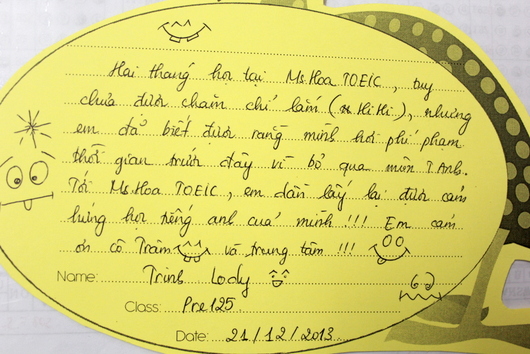 Hai tháng học tại Ms.Hoa TOEIC, tuy
chưa được chăm chỉ lắm (Hi Hi), nhưng
em đã biết được rằng mình hơi phí phạm
thời gian trước đây vì bỏ qua môn T.Anh.
Tới Ms.Hoa TOEIC, em dần lấy lại được cảm
hứng học tiếng anh của mình !!! Em cảm
ơn cô Trâm và trung tâm !!!
Name: Trinh Lody
Class: Pre125
Date: 21/12/2013